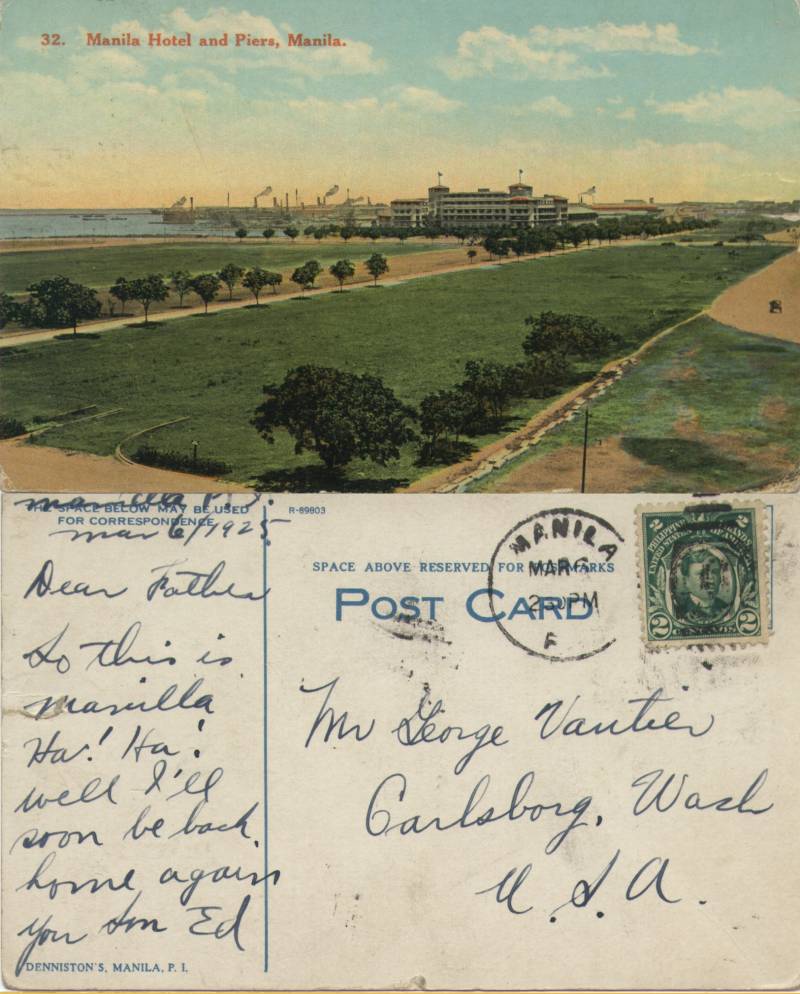 32. Manila Hotel and Piers, Manila.
manilla P.I.
THE SPACE BELOW MAY BE USED
FOR CORRESPONDENCE
mar 6/1925
Dear Father
So this is
manilla
Ha! Ha!
well I'll
soon be back
home again
your Son Ed
DENNISTON'S, MANILA, P. I.
R-69803
SPACE ABOVE RESERVED FOR POSTMARKS
POST CARD
MANILA
MAR 6
2 30 PM
F
PHILIPPINE ISLANDS
UNITED STATES OF AMERICA
2 CENTS 2
Mr George Vautier
Carlsborg, Wash
U.S.A.